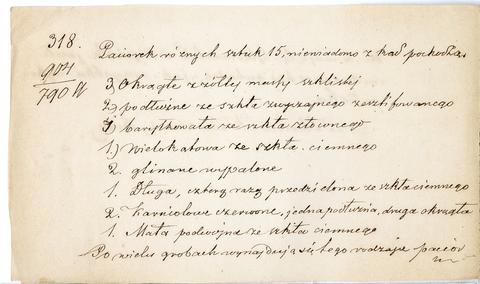 318.
Paciorek różnych sztuk 15, nieniadomo z kąd pochodzą.
904
790
3, Okrągłe z żółtej massy szklistej
2, podłużne ze szkła zwyczajnego zeszlifowanego
1) ze szkła
1) Wielokątowa ze szkła ciemnego
2. gliniane wypalone
1. Długa, cztery razy przedzielona ze szkła ciemnego
2. Karniolowe czerwone, jedna podłużna, druga okrągła
1. Mała podwójna ze szkła ciemnego
Po wielu grobach wynajdują się tego rodzaju pacior